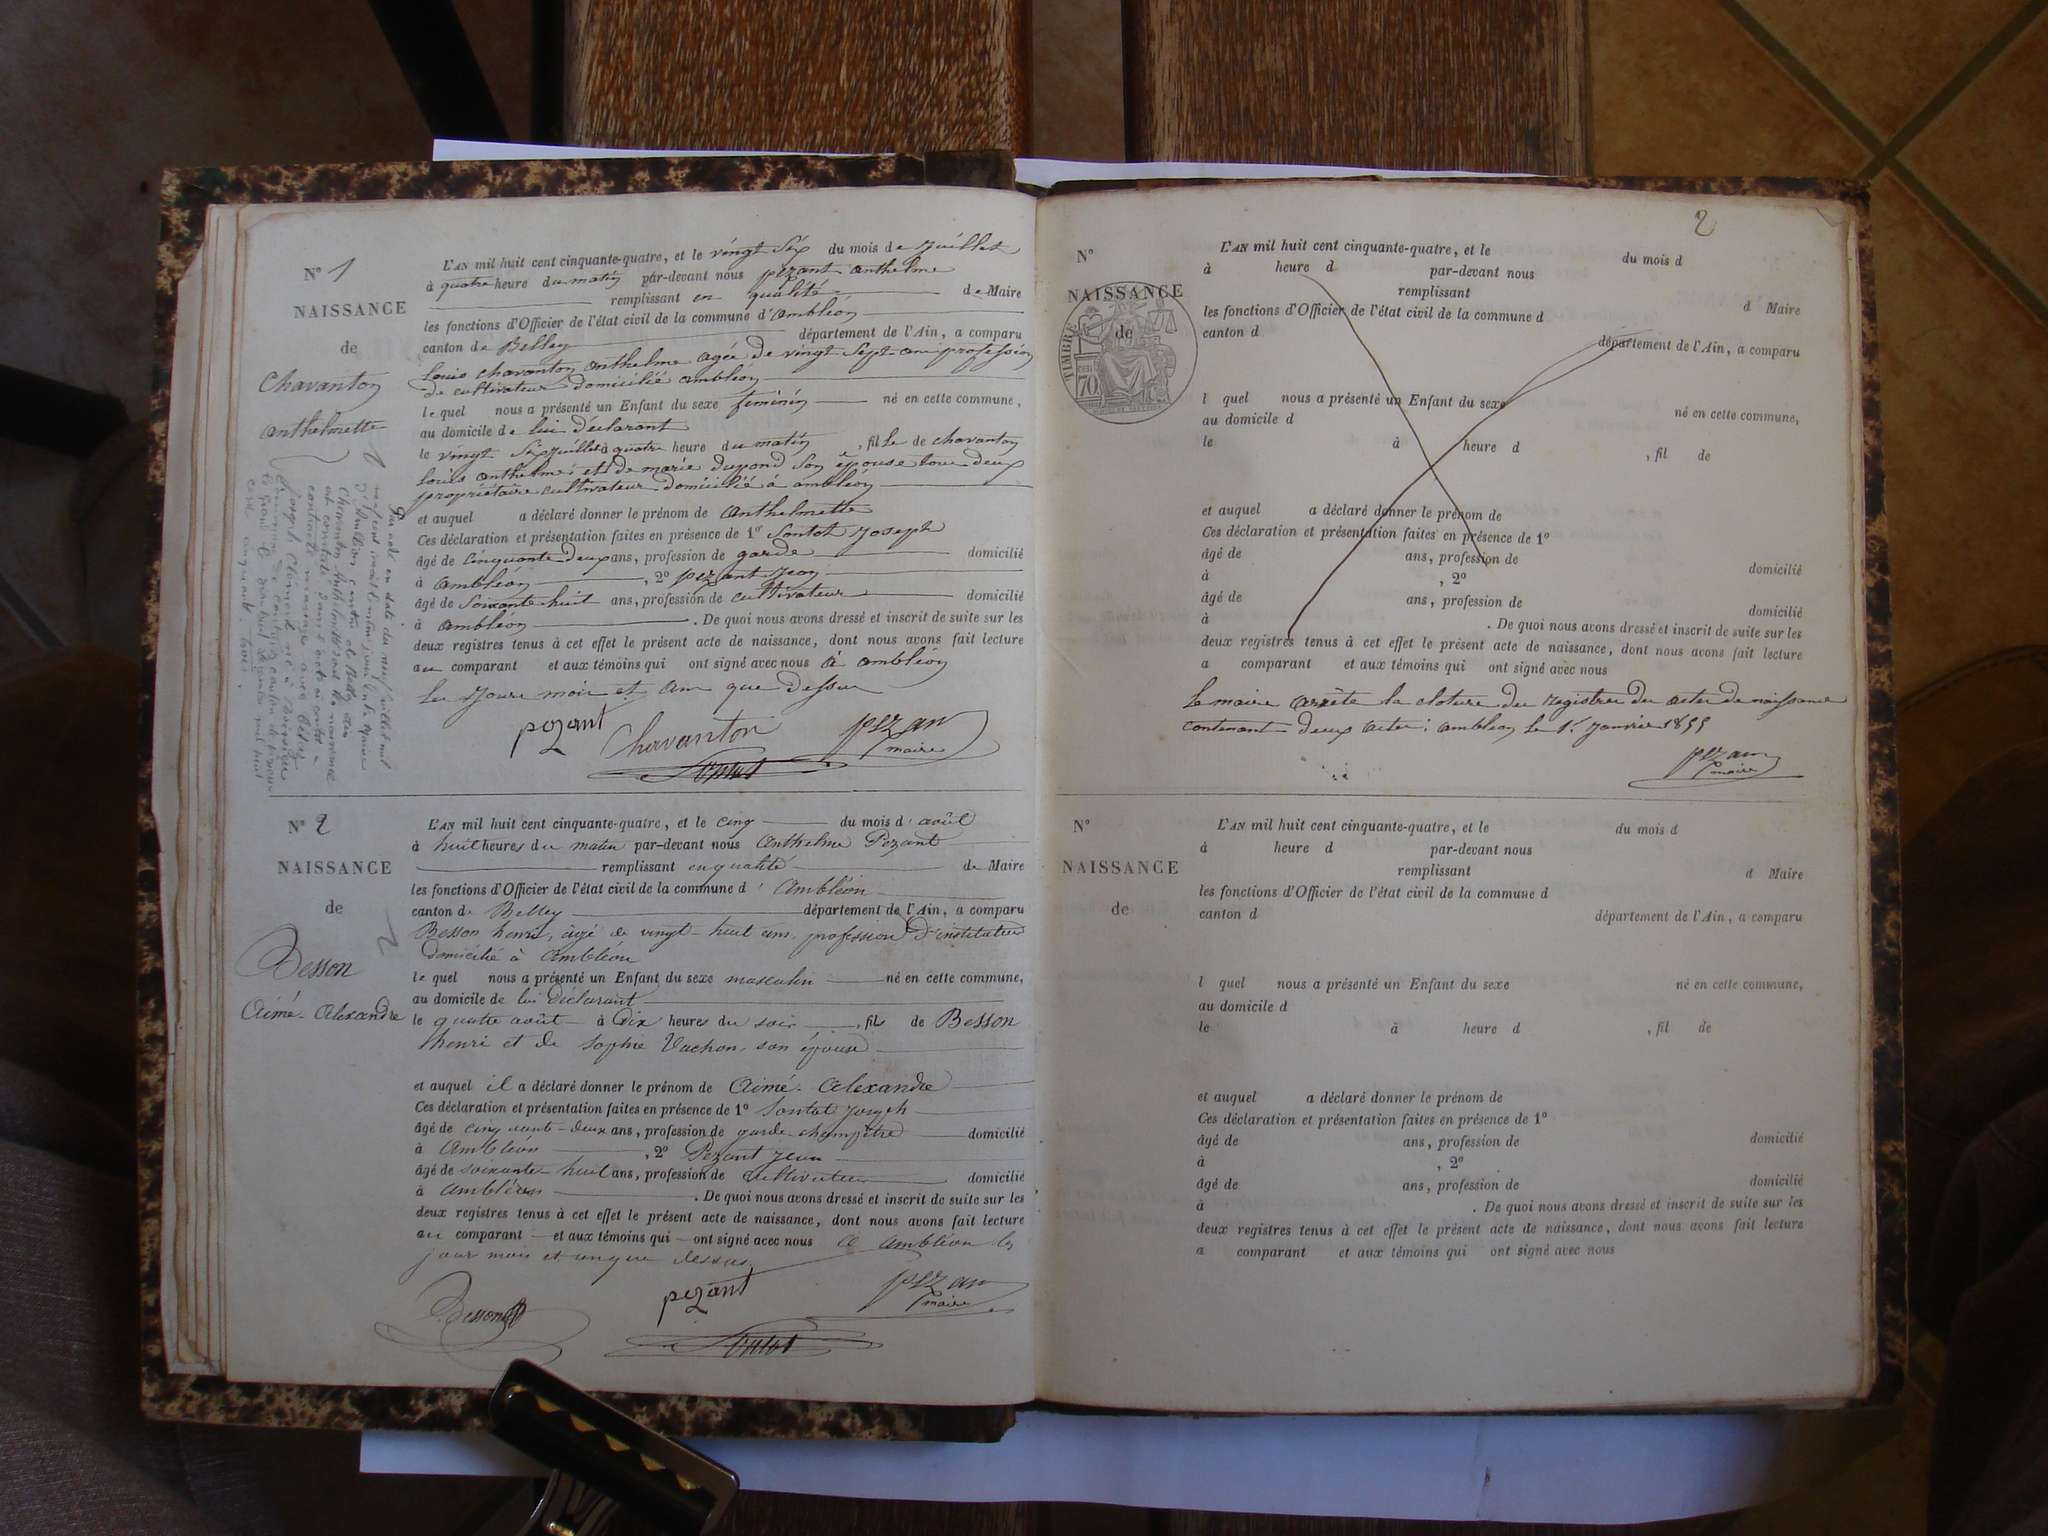 N° 1
NAISSANCE
de
Chavanton
anthelmette
L'AN mil huit cent cinquante-quatre, et le vingt Six du mois de Juillet
à quatre heure du matin par-devant nous pezant anthelme
remplissant en qualité de Maire
les fonctions d'Officier de l'état civil de la commune d'ambléon
canton de Belley département de l'Ain, a comparu
Louis chavanton anthelme agée de vingt Sept ans profession
de cultivateur domicilié ambléon
le quel nous a présenté un Enfant du sexe feminin né en cette commune,
au domicile de lui déclarant
le vingt Six Juillet à quatre heure du matin, fille de chavanton
Louis anthelme; et de marie dupond Son épouse tous deux
propriétaire cultivateur domicilié à ambléon
et auquel a déclaré donner le prénom de anthelmette
Ces déclaration et présentation faites en présence de 1° Sontot Joseph
âgé de cinquante deux ans, profession de garde domicilié
à ambléon, 2° pezant Jean
âgé de Soixante huit ans, profession de cultivateur domicilié
à ambléon. De quoi nous avons dressé et inscrit de suite sur les
deux registres tenus à cet effet le présent acte de naissance, dont nous avons fait lecture
au comparant et aux témoins qui ont signé avec nous à ambléon
Les Jours mois et an que dessus
pezant Chavanton pezan
maire
Sontot
Par acte en date du neuf juillet mil
neuf cent
d'Ambléon canton de Belley
Chavanton Anthelmette
contracté mariage avec
Joseph Clément né à
N° 2
NAISSANCE
de
Besson
Aimé-Alexandre
L'AN mil huit cent cinquante-quatre, et le cinq du mois d'août
à huit heures du matin par-devant nous Anthelme Pezant
remplissant en qualité de Maire
les fonctions d'Officier de l'état civil de la commune d'Ambléon
canton de Belley département de l'Ain, a comparu
Besson henri, âgé de vingt-huit ans, profession d'instituteur
domicilié à Ambléon
le quel nous a présenté un Enfant du sexe masculin né en cette commune,
au domicile de lui déclarant
le quatre août à dix heures du soir, fils de Besson
henri et de Sophie Vachon son épouse
et auquel il a déclaré donner le prénom de Aimé-Alexandre
Ces déclaration et présentation faites en présence de 1° Sontot Joseph
âgé de cinquante-deux ans, profession de garde-champêtre domicilié
à Ambléon, 2° Pezant Jean
âgé de soixante-huit ans, profession de cultivateur domicilié
à Ambléon. De quoi nous avons dressé et inscrit de suite sur les
deux registres tenus à cet effet le présent acte de naissance, dont nous avons fait lecture
au comparant et aux témoins qui ont signé avec nous à Ambléon les
jour mois et an que dessus
Besson pezant pezan
maire
Sontot
2
N°
NAISSANCE
de
TIMBRE
70
L'AN mil huit cent cinquante-quatre, et le du mois d
à heure d par-devant nous
remplissant d Maire
les fonctions d'Officier de l'état civil de la commune d
canton d département de l'Ain, a comparu
l quel nous a présenté un Enfant du sexe né en cette commune,
au domicile d
le à heure d , fil de
et auquel a déclaré donner le prénom de
Ces déclaration et présentation faites en présence de 1°
âgé de ans, profession de domicilié
à , 2°
âgé de ans, profession de domicilié
à . De quoi nous avons dressé et inscrit de suite sur les
deux registres tenus à cet effet le présent acte de naissance, dont nous avons fait lecture
a comparant et aux témoins qui ont signé avec nous
Le maire arrête la cloture du registre des actes de naissance
contenant deux actes: ambléon le 1er Janvier 1855
pezan
maire
N°
NAISSANCE
de
L'AN mil huit cent cinquante-quatre, et le du mois d
à heure d par-devant nous
remplissant d Maire
les fonctions d'Officier de l'état civil de la commune d
canton d département de l'Ain, a comparu
l quel nous a présenté un Enfant du sexe né en cette commune,
au domicile d
le à heure d , fil de
et auquel a déclaré donner le prénom de
Ces déclaration et présentation faites en présence de 1°
âgé de ans, profession de domicilié
à , 2°
âgé de ans, profession de domicilié
à . De quoi nous avons dressé et inscrit de suite sur les
deux registres tenus à cet effet le présent acte de naissance, dont nous avons fait lecture
a comparant et aux témoins qui ont signé avec nous